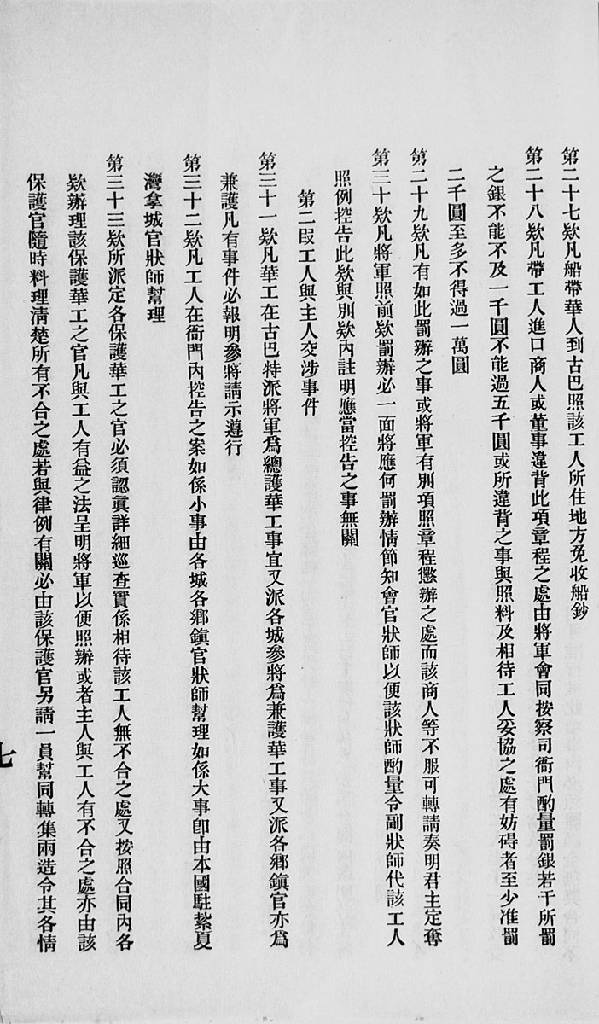 第二十七欵凡船帶華人到古巴照該工人所住地方免收船鈔
第二十八欵凡帶工人進口商人或董事違背此項章程之處由將軍會同按察司衙門酌量罰銀若干所罰
之銀不能不及一千圓不能過五千圓或所違背之事與照料及相待工人妥協之處有妨碍者至少准罰
二千圓至多不得過一萬圓
第二十九欵凡有如此罰辦之事或將軍有別項照章程懲辦之處而該商人等不服可轉請奏明君主定奪
第三十欵凡將軍照前欵罰辦必一面將應何罰辦情節知會官狀師以便該狀師酌量令副狀師代該工人
照例控告此欵與別欵內註明應當控告之事無關
第二段工人與主人交涉事件
第三十一欵凡華工在古巴特派將軍爲總護華工事宜又派各城參將爲兼護華工事又派各鄉鎭官亦爲
兼護凡有事件必報明參將請示遵行
第三十二欵凡工人在衙門內控告之案如係小事由各城各鄉鎭官狀師幫理如係大事卽由本國駐紮夏
灣拿城官狀師幫理
第三十三欵所派定各保護華工之官必須認眞詳細巡查實係相待該工人無不合之處又按照合同內各
欵辦理該保護華工之官凡與工人有益之法呈明將軍以便照辦或者主人與工人有不合之處亦由該
保護官隨時料理清楚所有不合之處若與律例有關必由該保護官另請一員幫同轉集兩造令其各情
七